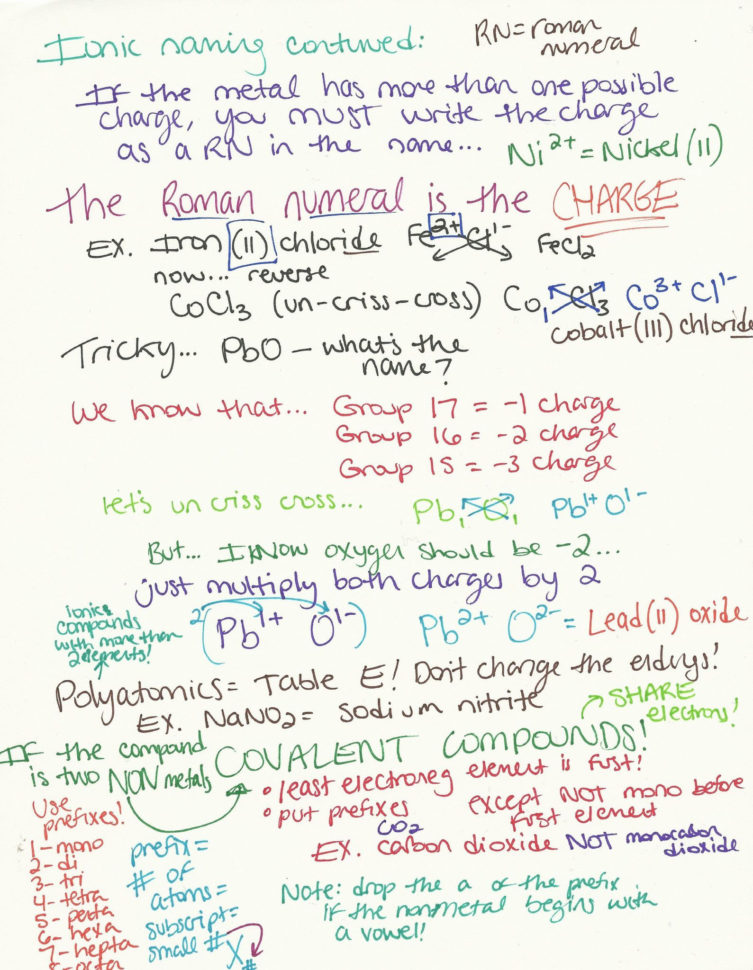 Ionic naming continued:
RN = roman
numeral
If the metal has more than one possible
charge, you must write the charge
as a RN in the name... Ni²⁺ = Nickel (II)
The Roman numeral is the CHARGE
EX. Iron (II) chloride Fe²⁺ Cl¹⁻ FeCl₂
now... reverse
CoCl₃ (un-criss-cross) Co₁ Cl₃ Co³⁺ Cl¹⁻
cobalt (III) chloride
Tricky... PbO - what's the
name?
We know that... Group 17 = -1 charge
Group 16 = -2 charge
Group 15 = -3 charge
let's un criss cross... Pb₁ O₁ Pb¹⁺ O¹⁻
But... I KNOW oxygen should be -2...
just multiply both charges by 2
ionic
compounds
with more than
2 elements!
2(Pb¹⁺ O¹⁻) Pb²⁺ O²⁻ = Lead (II) oxide
Polyatomics = Table E! Don't change the endings!
EX. NaNO₂ = sodium nitrite
SHARE
electrons!
If the compound
is two NON metals
COVALENT COMPOUNDS!
• least electroneg element is first!
• put prefixes except NOT mono before
first element
CO₂
EX. carbon dioxide NOT monocarbon
dioxide
Use
prefixes!
1- mono
2- di
3- tri
4- tetra
5- penta
6- hexa
7- hepta
8- octa
prefix =
# of
atoms =
subscript =
small #
X#
Note: drop the a of the prefix
if the nonmetal begins with
a vowel!